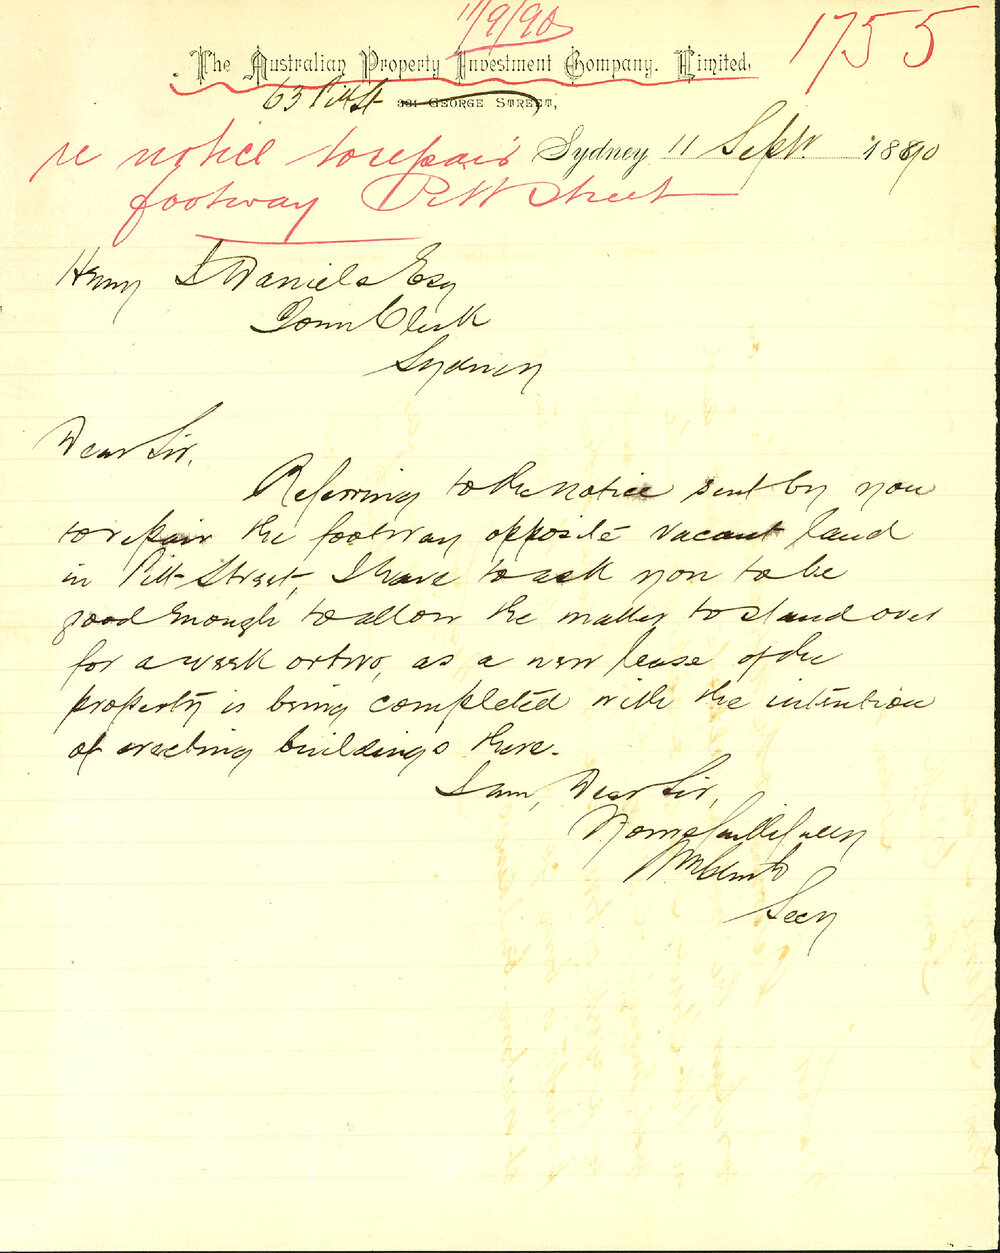 11/9/90
1755
The Australian Property Investment Company. Limited.
63 Pitt St 391 GEORGE STREET,
re notice to repair Sydney 11 Septr. 1890
footway Pitt Street
Henry Daniels Esq
Town Clerk
Sydney
Dear Sir.
Referring to the notice sent by you
to repair the footway opposite vacant land
in Pitt Street, I have to ask you to be
good enough to allow the matter to stand over
for a week or two, as a new lease of the
property is being completed with the intention
of erecting buildings there.
I am, Dear Sir,
Yours faithfully
Secy